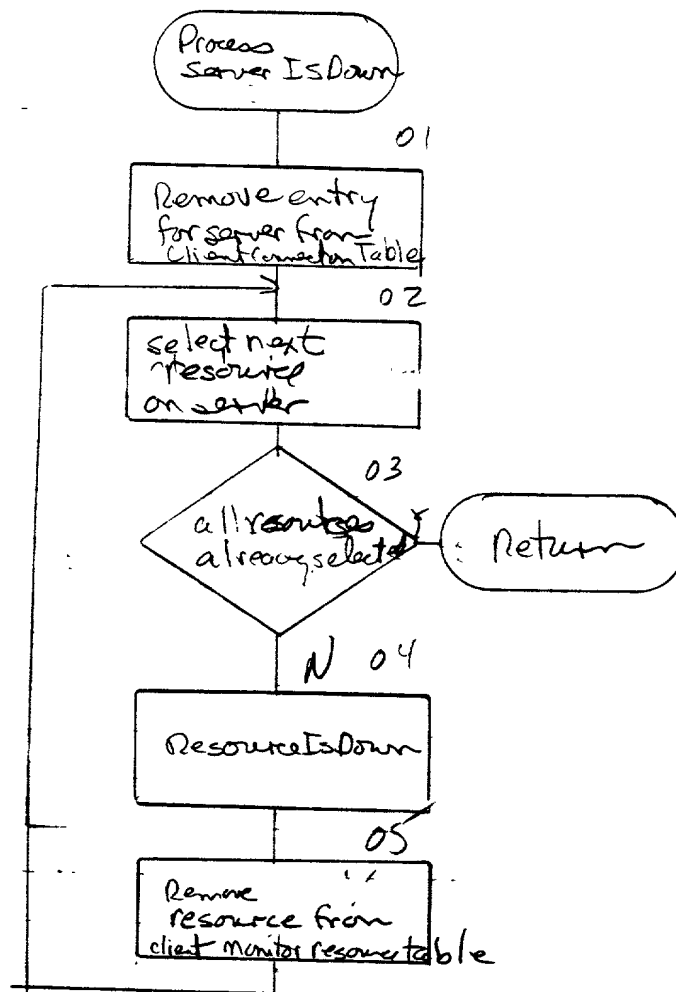 Process
server IsDown
01
Remove entry
for server from
ClientConnectionTable
02
select next
resource
on server
03
all resources
already selected
Y
Return
N 04
ResourceIsDown
05
Remove
resource from
client monitor resource table